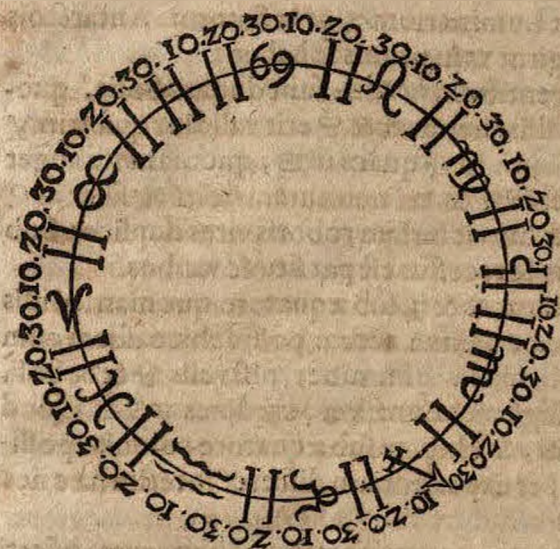 10.20.30.10.20.30.10.20.30.10.20.30.10.20.30.10.20.30.10.20.30.10.20.30.10.20.30.10.20.30.10.20.30.10.20.30.
♈ ♉ ♊ ♋ ♌ ♍ ♎ ♏ ♐ ♑ ♒ ♓